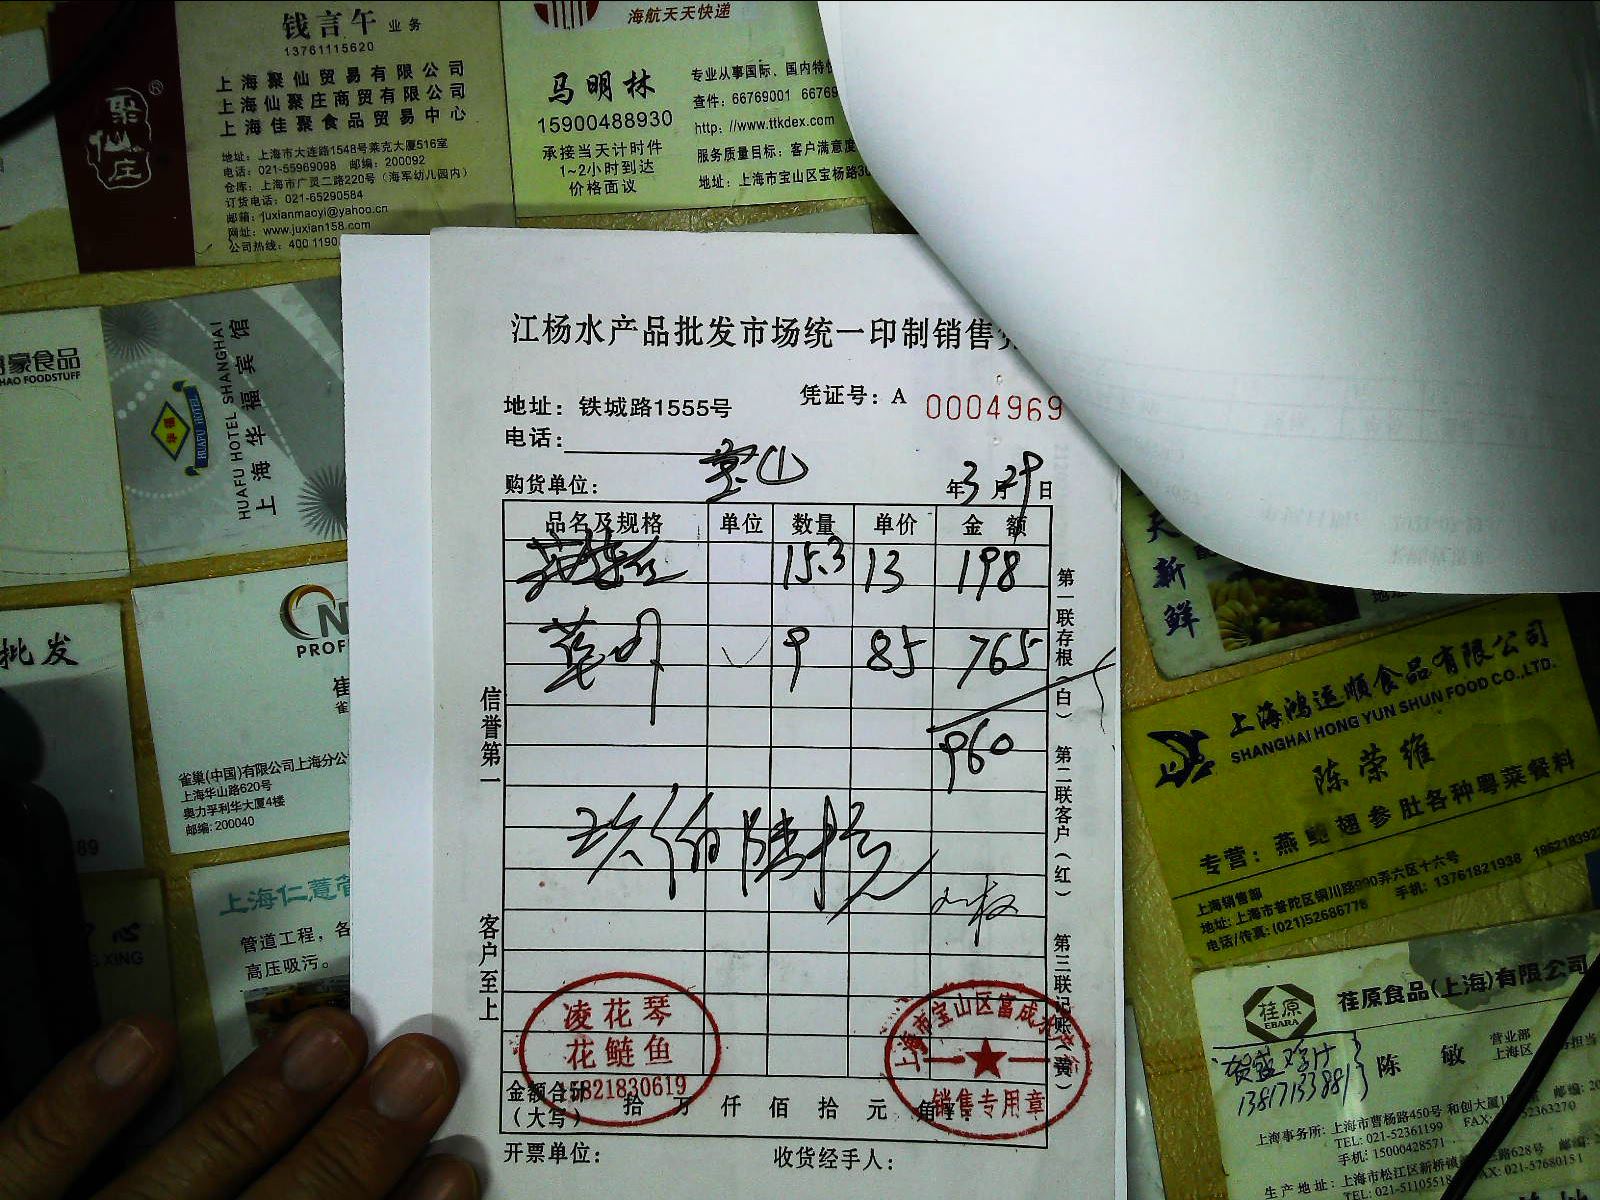 钱言午 业务
13761115620
上海聚仙贸易有限公司
上海仙聚庄商贸有限公司
上海佳聚食品贸易中心
地址：上海市大连路1548号莱克大厦516室
电话：021-55969098 邮编：200092
仓库：上海市广灵二路220号（海军幼儿园内）
订货电话：021-65290584
邮箱：juxianmaoyi@yahoo.cn
网址：www.juxian158.com
公司热线：400 1190
聚仙庄®
海航天天快递
马明林
15900488930
承接当天计时件
1~2小时到达
价格面议
专业从事国际、国内特快
查件：66769001 66769
http://www.ttkdex.com
服务质量目标：客户满意度
地址：上海市宝山区宝杨路
豪食品
HAO FOODSTUFF
华福
HUAFU HOTEL
HUAFU HOTEL SHANGHAI
上海华福宾馆
批发
89
PROF
崔
雀巢(中国)有限公司上海分公
上海华山路620号
奥力孚利华大厦4楼
邮编: 200040
上海仁薏
管道工程，各
高压吸污。
心
XING
江杨水产品批发市场统一印制销售
地址：铁城路1555号
凭证号：A 0004969
电话：
购货单位： 宝山
年3月29日
品名及规格 单位 数量 单价 金额
15.3 13 198
9 85 765
960
玖佰陆拾元
信誉第一
客户至上
第一联存根（白） 第二联客户（红） 第三联记账（黄）
凌花琴
花鲢鱼
15821830619
上海市宝山区富成水
销售专用章
金额合计
（大写）
拾 万 仟 佰 拾 元 角
开票单位：
收货经手人：
天新鲜
上海鸿运顺食品有限公司
SHANGHAI HONG YUN SHUN FOOD CO.,LTD.
陈荣维
专营：燕鲍翅参肚各种粤菜餐料
上海销售部
地址: 上海市普陀区铜川路990弄六区十六号
电话/传真: (021)52686778 手机: 13761821938 186218392
荏原
EBARA
荏原食品(上海)有限公司
陈敏
营业部
上海区
13817153881
上海事务所: 上海市曹杨路450号 和创大厦
TEL: 021-52361199 FAX:
手机: 15000428571
生产地址: 上海市松江区新桥镇
TEL: 021-5110551
FAX: 021-57680151